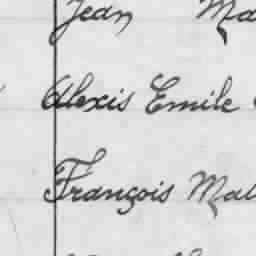 Jean
Alexis Emile
François